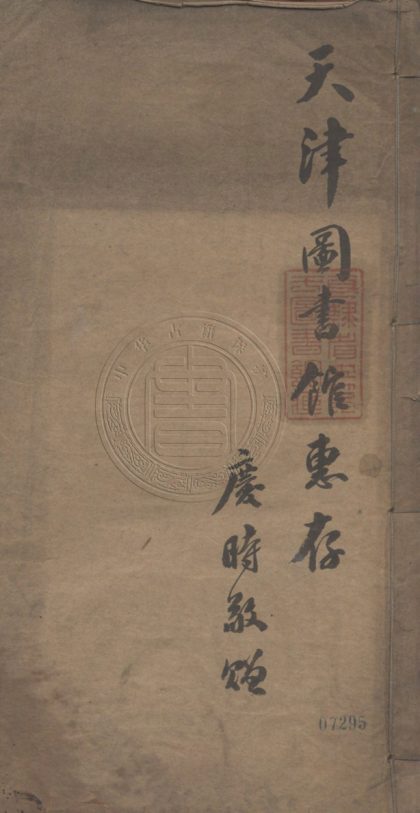 天津圖書館惠存
慶時敬贈
07295